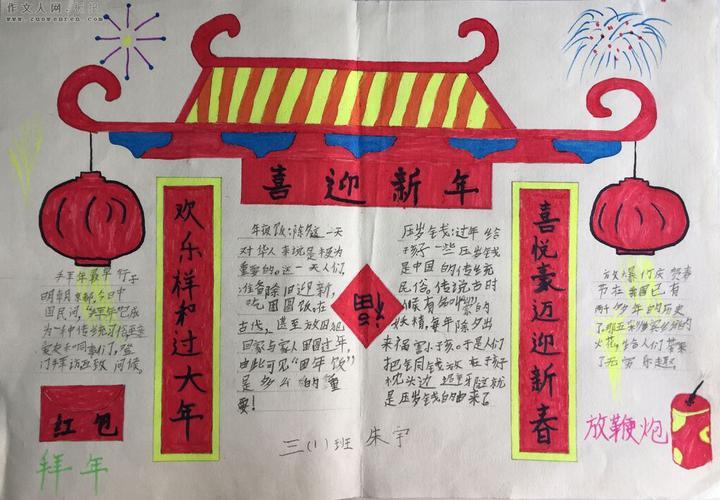 作文人网
www.zuowenren.com
喜迎新年
欢乐祥和过大年
喜悦豪迈迎新春
福
年饭:除夕一天
对华人来说是极为
重要的。这一天人们
准备除旧迎新,
吃团圆饭。在
古代,甚至
回家与家人团圆过年,
由此可见"团年饭"
是多么的重
要!
压岁钱:过年给
孩子一些压岁钱
是中国的传统
民俗,传说古时
候有
妖精,每年除夕出
来福害小孩。于是人们
把铜钱放在孩子
枕头边
是压岁钱的由来了
拜年最早行于
明朝
国民间,拜年已成
为一种传统习俗
亲友
门拜访
问候。
放爆竹庆贺春
节在我国已有
两千多年的历史
了
火花,给人们带来
了无穷乐趣
红包
拜年
三(1)班 朱宇
放鞭炮